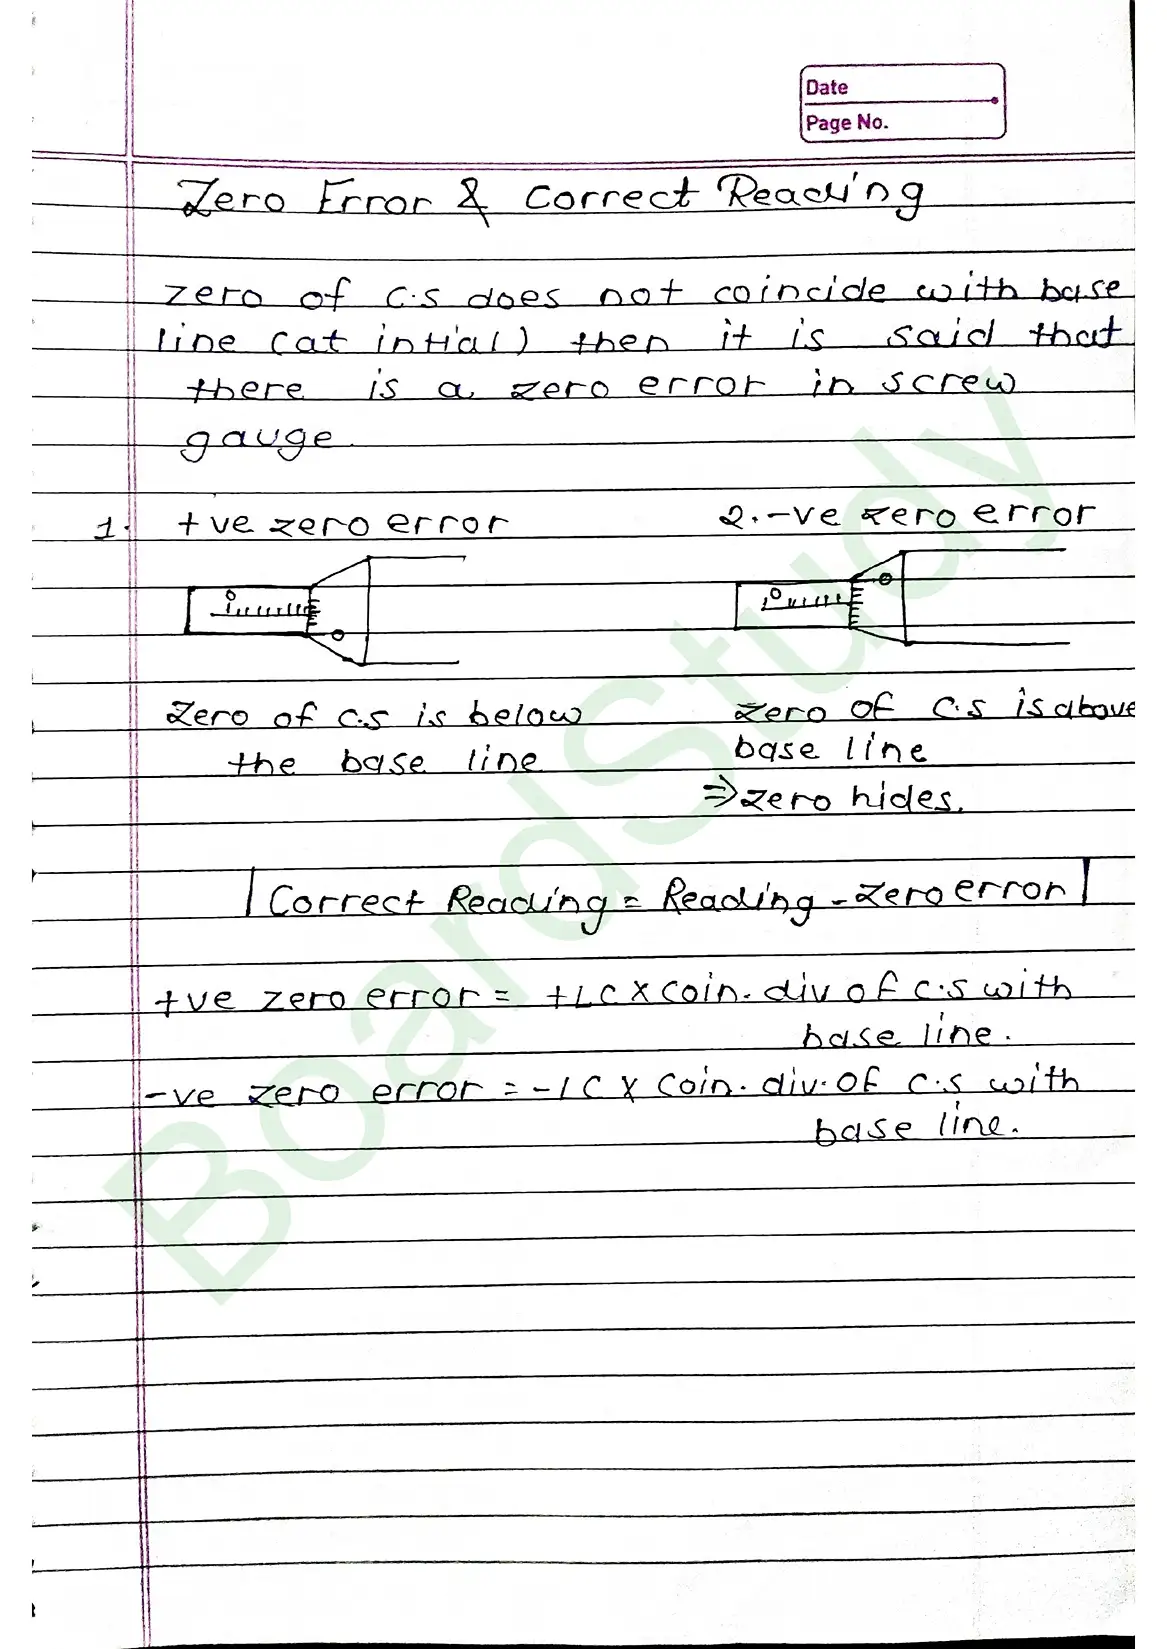 Date
Page No.
Zero Error & Correct Reading
zero of c.s does not coincide with base
line (at intial) then it is said that
there is a zero error in screw
gauge.
1. +ve zero error
0
0
Zero of c.s is below
the base line
2. -ve zero error
0
0
Zero of c.s is above
base line
⇒ zero hides.
Correct Reading = Reading - Zero error
+ve zero error = +LC X coin. div of c.s with
base line.
-ve zero error = -LC X coin. div. of c.s with
base line.
BoardStudy